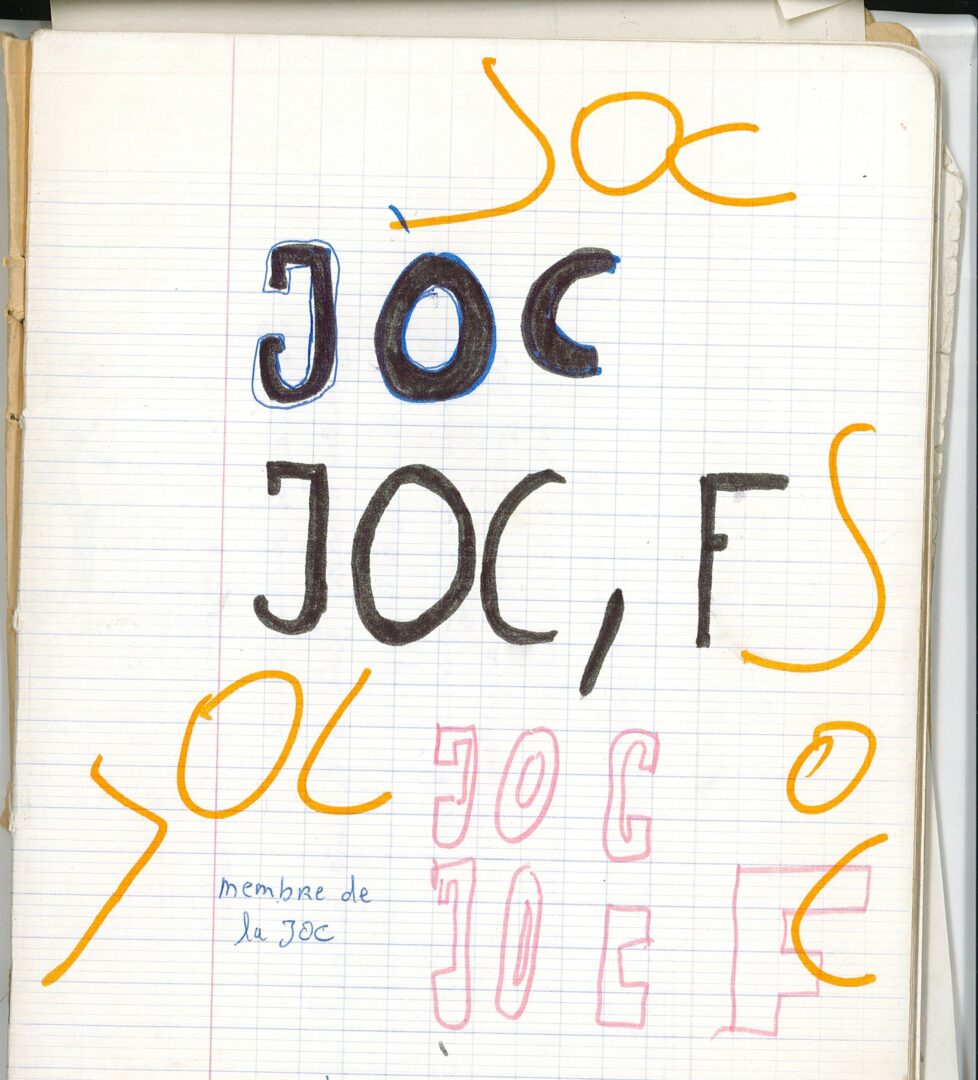 JOC
JOC
JOC, F
JOC
JOC
JOC
JOC F
membre de
la JOC